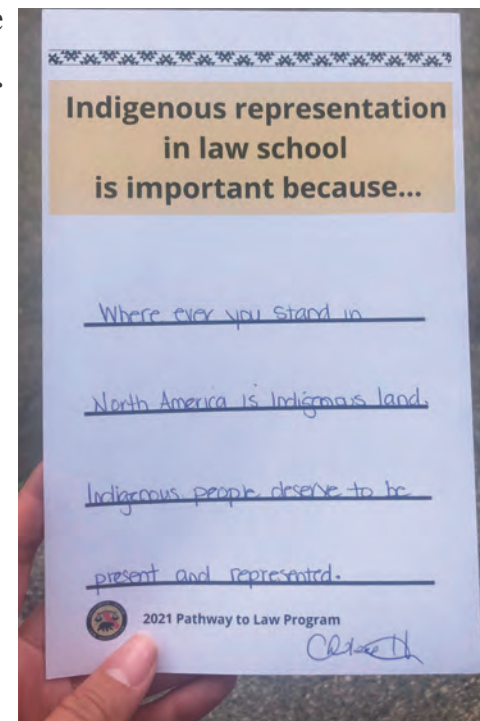 e
.
Indigenous representation
in law school
is important because...
Where ever you stand in
North America is Indigenous land.
Indigenous people deserve to be
present and represented.
2021 Pathway to Law Program